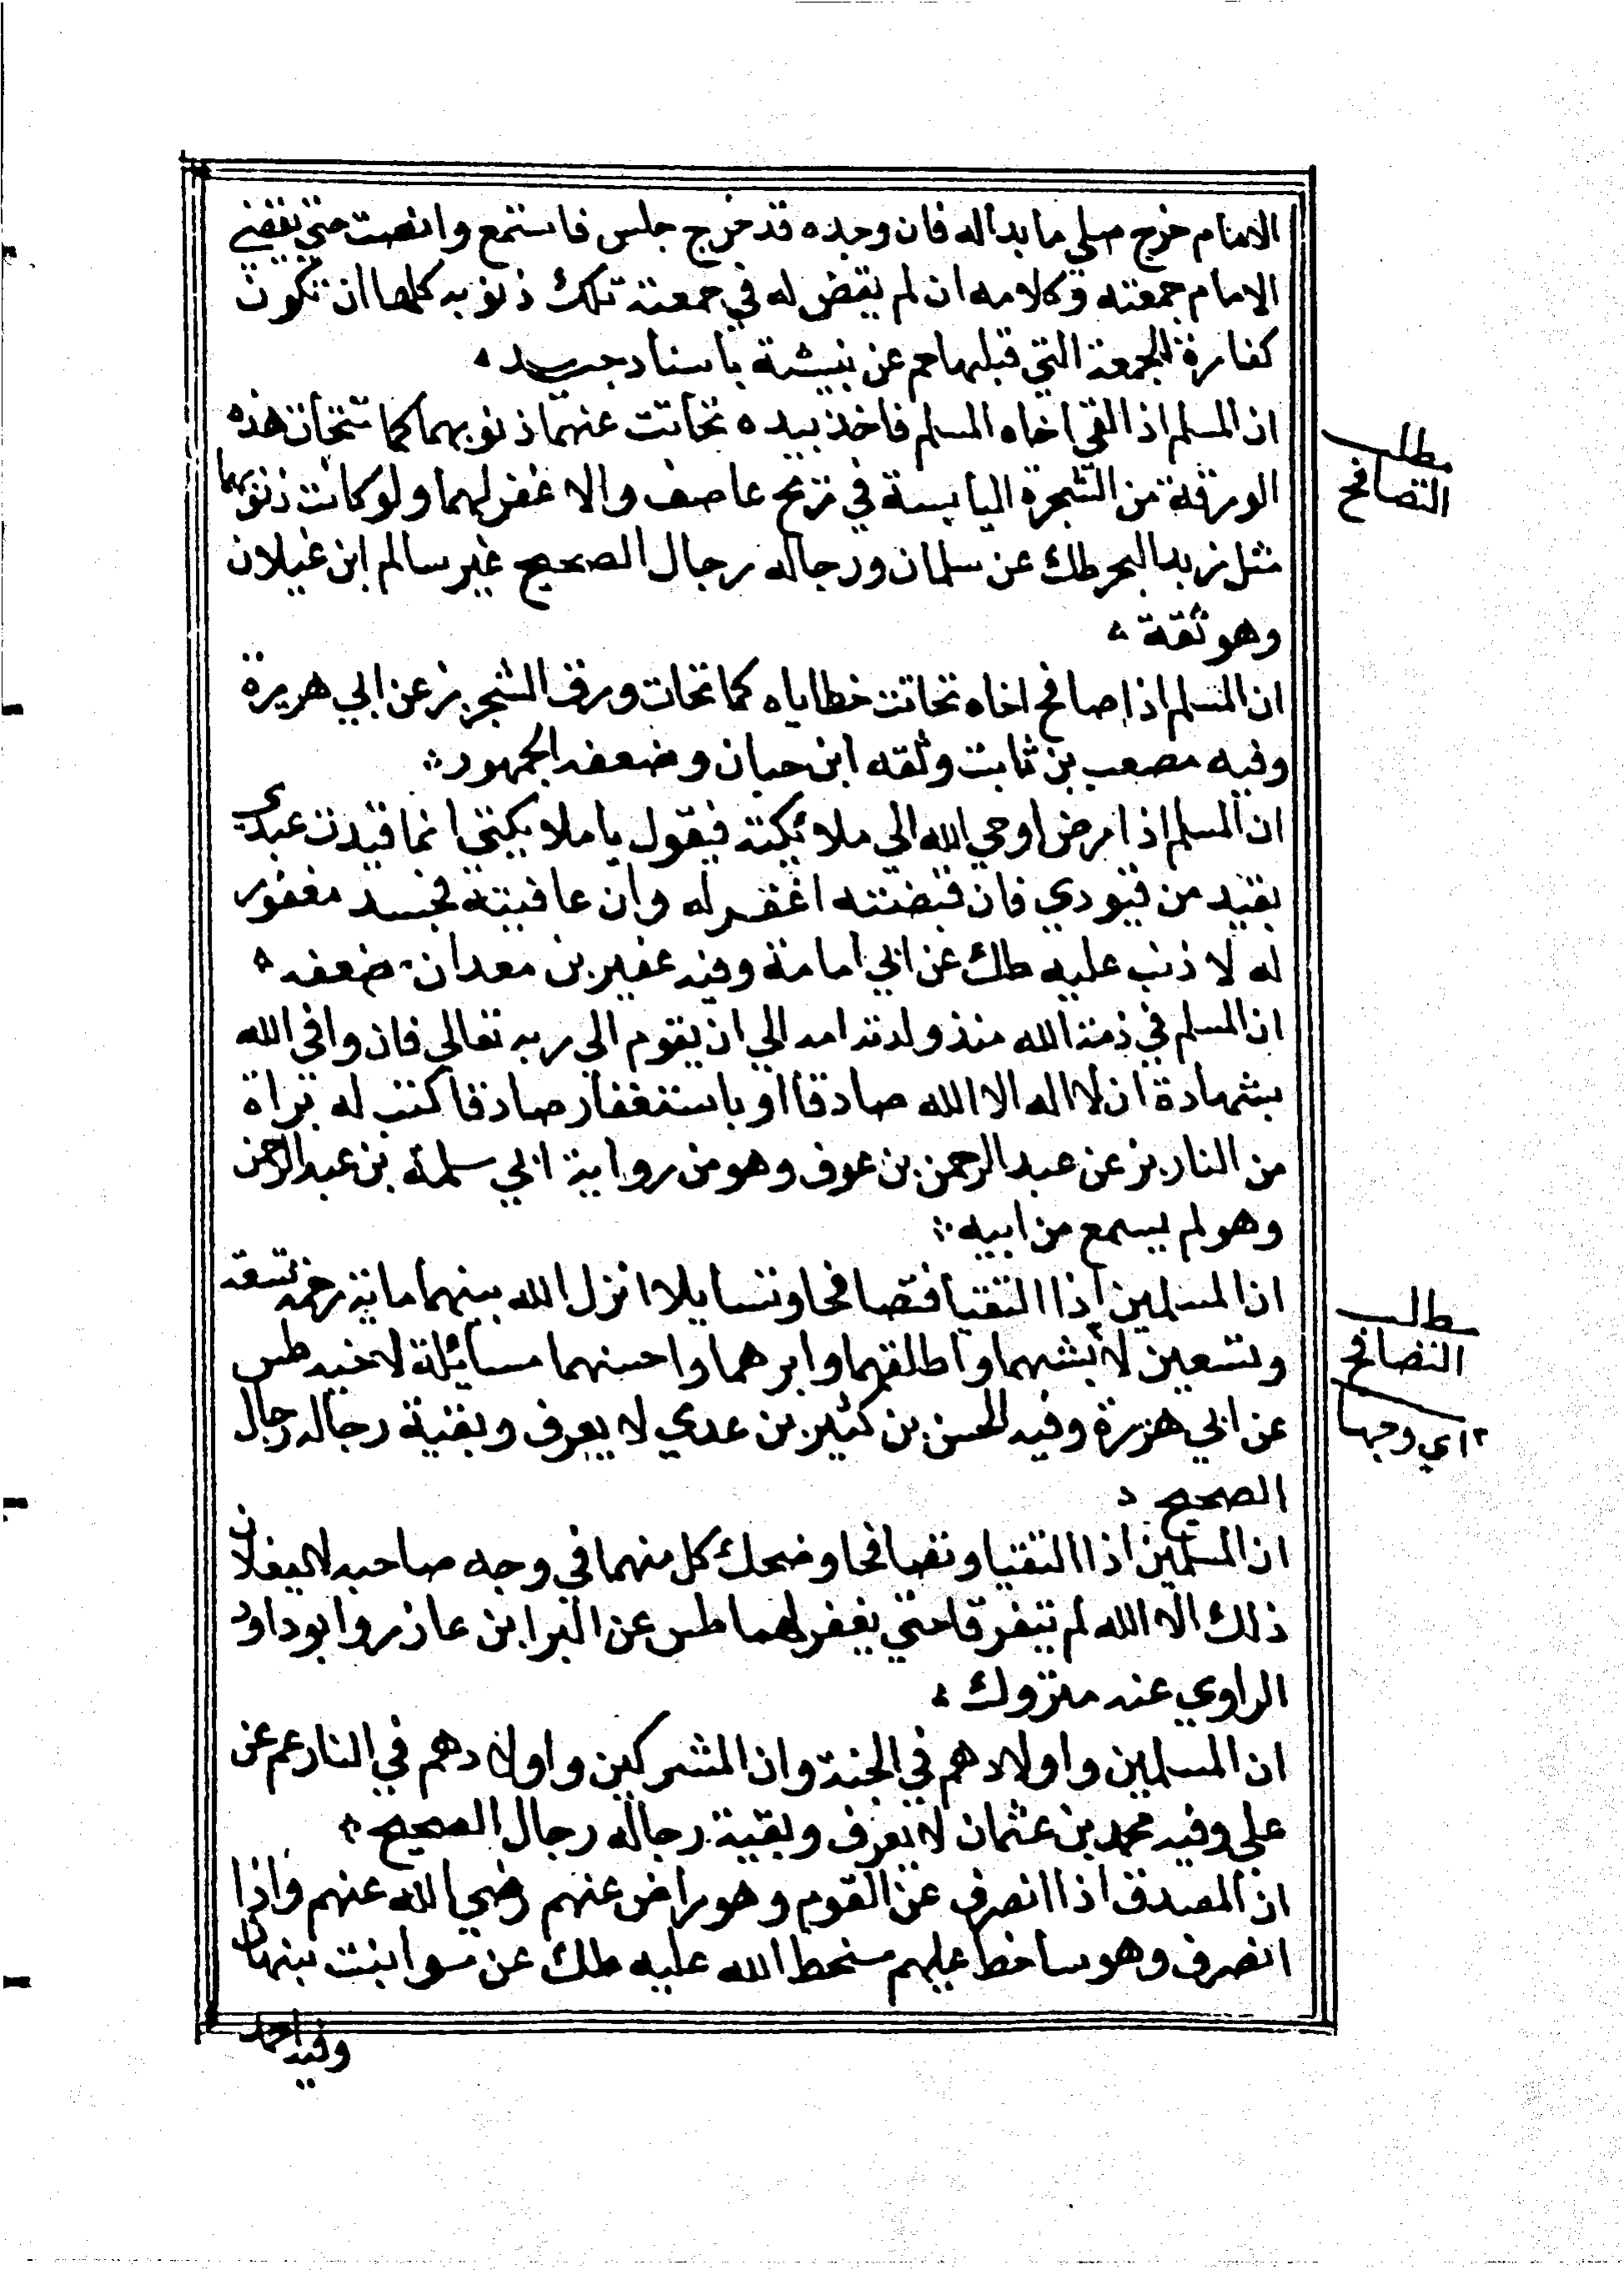 الامام خرج صلي ما بدا له فان وجده قد خرج جلس فاستمع وانصت حتي يقضي
الامام جمعته وكلامه ان لم يقض له في جمعته تلك ذنوبه كلها ان تكون
كفارة الجمعة التي قبلها حم عن نبيشة باسناد جيد
ان المسلم اذا لقي اخاه المسلم فاخذ بيده تحاتت عنهما ذنوبهما كما تتحات هذه
مطلب
التصافح
الورقة من الشجرة اليابسة في ريح عاصف والا غفر لهما ولو كانت ذنوبهما
مثل زبد البحر طك عن سلمان ورجاله رجال الصحيح غير سالم ابن غيلان
وهو ثقة
ان المسلم اذا صافح اخاه تحاتت خطاياه كما تحات ورق الشجر بز عن ابي هريرة
وفيه مصعب بن ثابت وثقه ابن حبان وضعفه الجمهور
ان المسلم اذا مرض اوحي الله الي ملائكته فيقول يا ملائكتي انما قيدت عبدي
بقيد من قيودي فان قبضته اغفر له وان عافيته فجسد مغفور
له لا ذنب عليه طك عن ابي امامة وفيه عفير بن معدان ضعفه
ان المسلم في ذمة الله منذ ولدته امه الي ان يقوم الي ربه تعالي فان وافي الله
بشهادة ان لا اله الا الله صادقا او باستغفار صادقا كتب له براة
من النار بز عن عبد الرحمن بن عوف وهو من رواية ابي سلمة بن عبد الرحمن
وهو لم يسمع من ابيه
ان المسلمين اذا التقيا فتصافحا وتسايلا انزل الله بينهما ماية رحمة تسعة
مطلب
التصافح
وتسعين لابشهما واطلقهما وابرهما واحسنهما مسائلة لاخيه طس
عن ابي هريرة وفيه الحسن بن كثير بن عدي لا يعرف وبقية رجاله رجال
اي وجها
الصحيح
ان المسلمين اذا التقيا وتصافحا وضحك كل منهما في وجه صاحبه لا يفعلان
ذلك الا لله لم يتفرقا حتي يغفر لهما طس عن البرا بن عازر وابو داود
الراوي عنه متروك
ان المسلمين واولادهم في الجنة وان المشركين واولادهم في النار عم عن
علي وفيه محمد بن عثمان لا يعرف وبقية رجاله رجال الصحيح
ان المصدق اذا انصرف عن القوم وهو راض عنهم رضي الله عنهم واذا
انصرف وهو ساخط عليهم سخط الله عليه طك عن سرا بنت نبهان
وفيه احمد